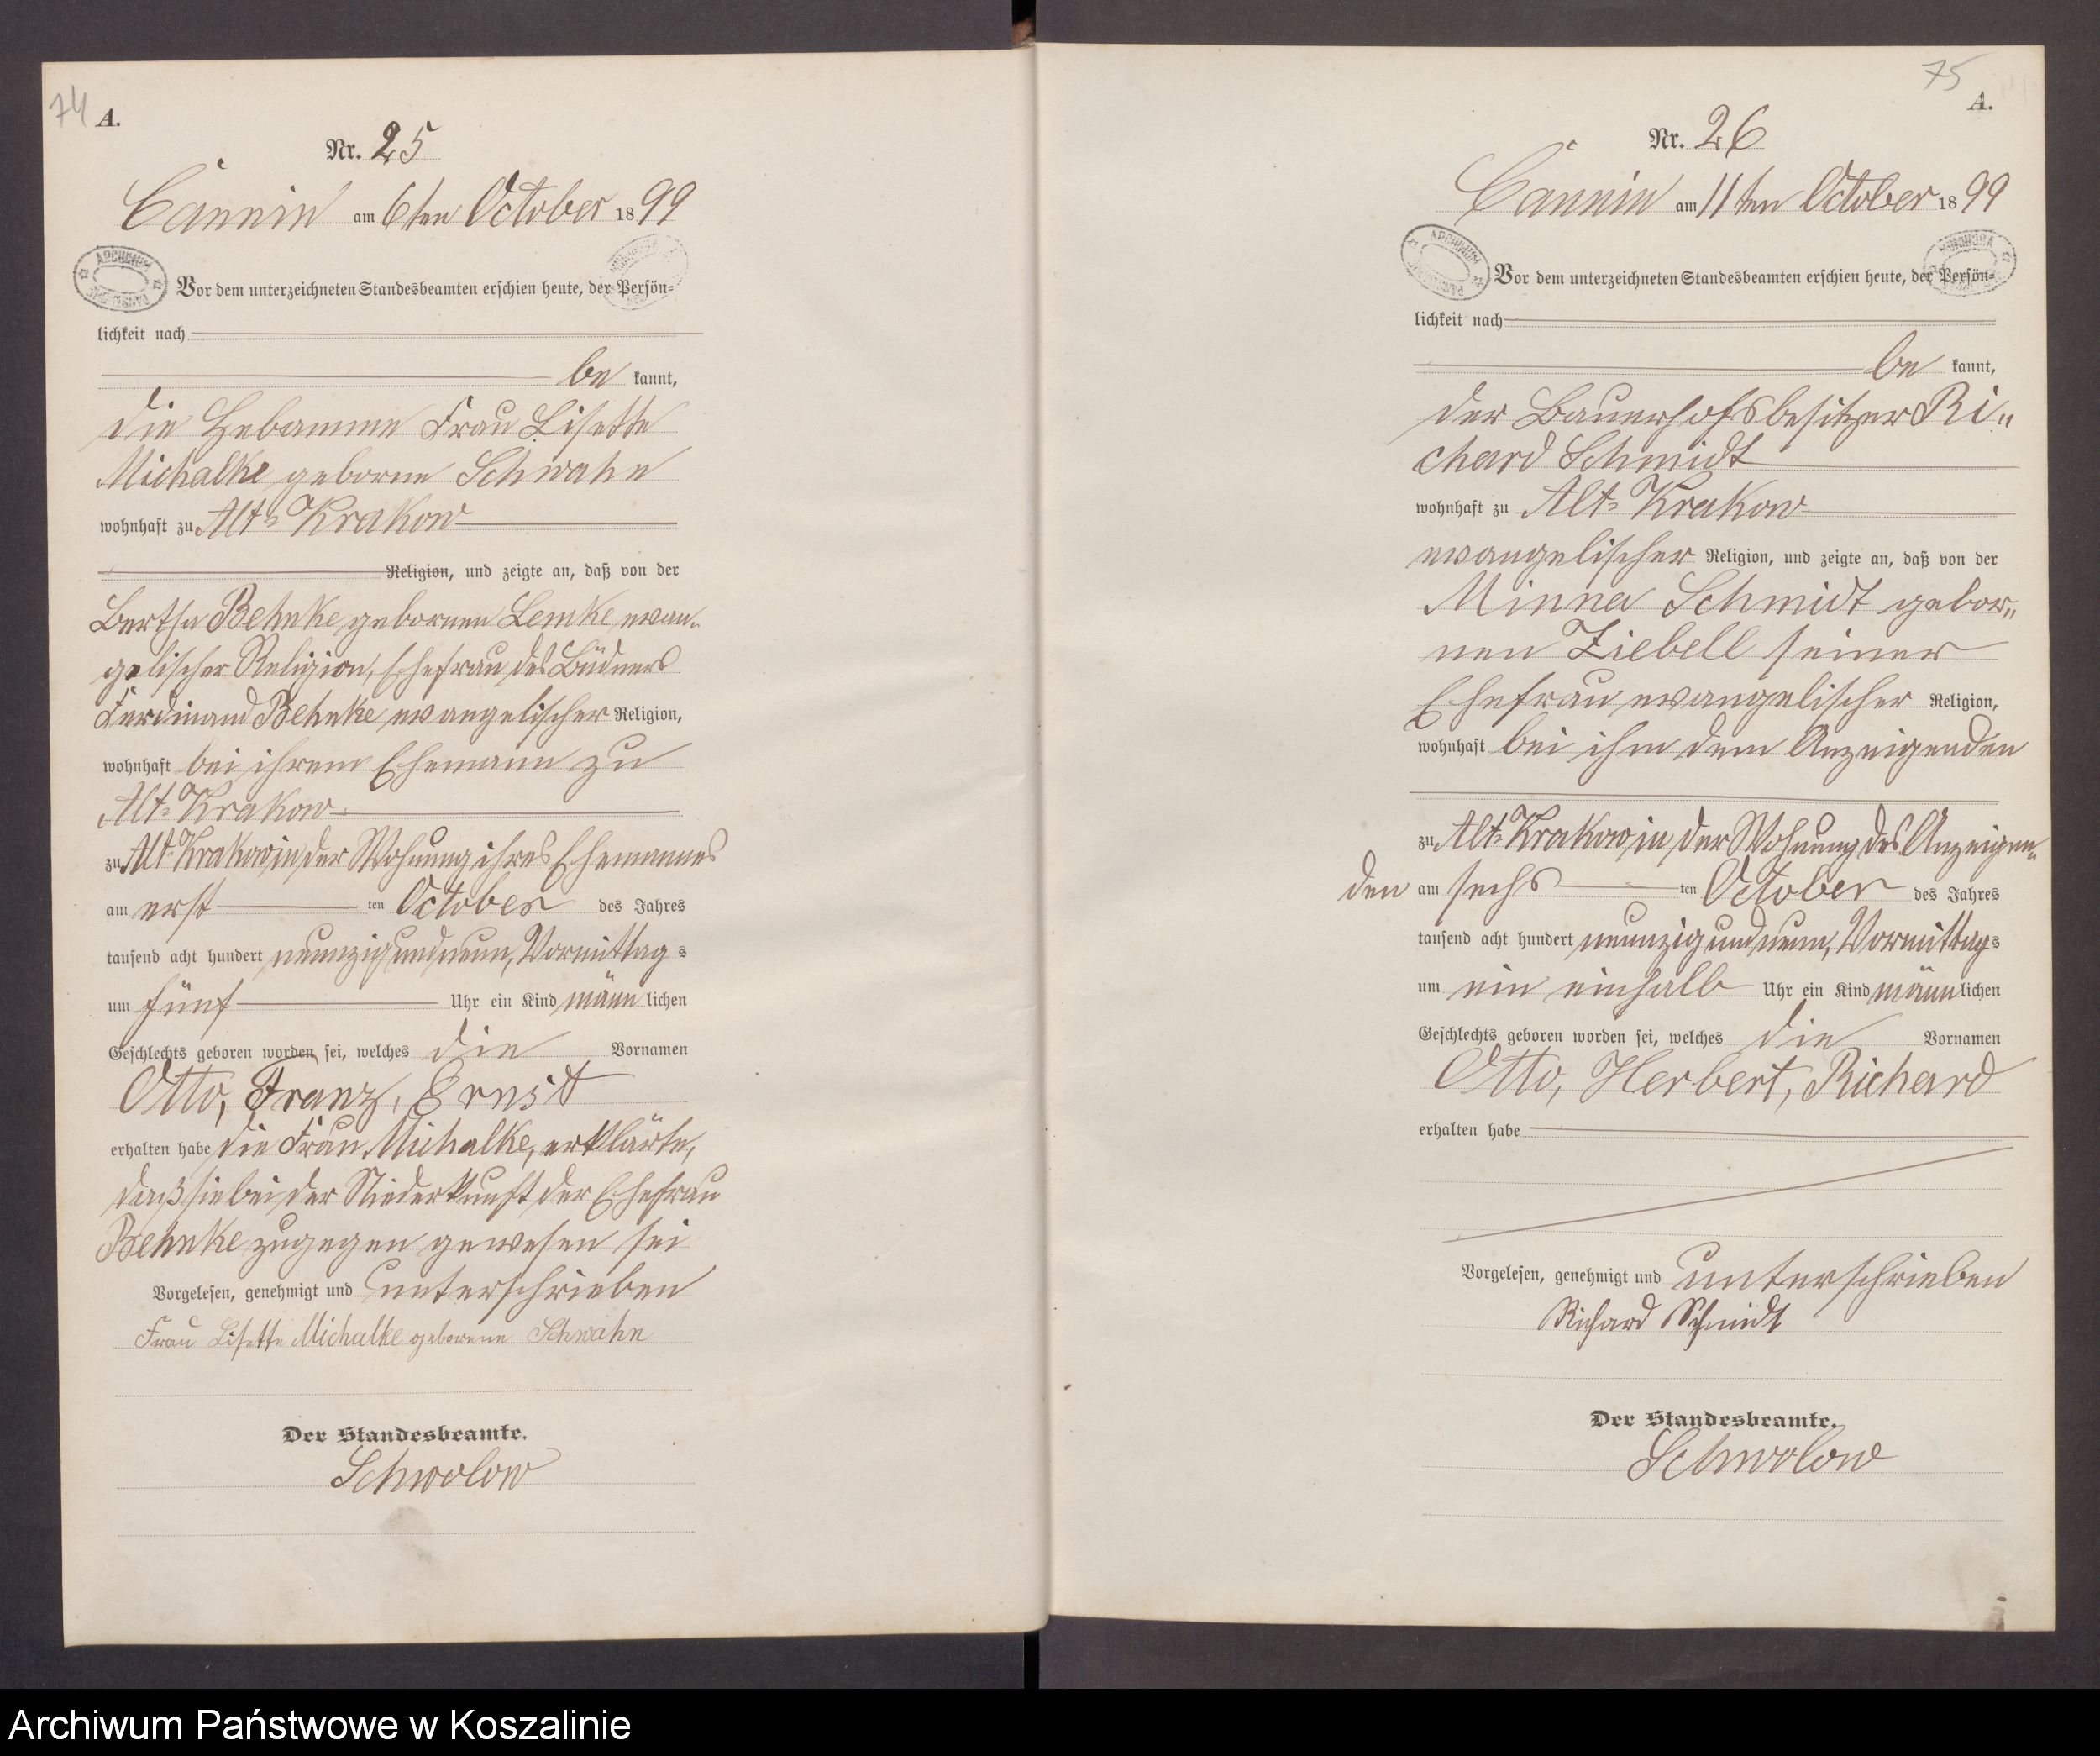 74
A.
Nr. 25
Cännin am 6ten October 1899
Vor dem unterzeichneten Standesbeamten erschien heute, der Persön=
lichkeit nach
be kannt,
die Hebamme Frau Lisette
Michalke geborne Schwahn
wohnhaft zu Alt= Krakow
Religion, und zeigte an, daß von der
Bertha Behnke gebornen Lemke, evan=
gelischer Religion, Ehefrau des Büdners
Ferdinand Behnke evangelischer Religion,
wohnhaft bei ihrem Ehemann zu
Alt= Krakow
zu Alt= Krakow in der Wohnung ihres Ehemannes
am erst ten October des Jahres
tausend acht hundert neunzig und neun, Vormittag s
um fünf Uhr ein Kind männ lichen
Geschlechts geboren worden sei, welches die Vornamen
Otto, Franz, Ernst
erhalten habe die Frau Michalke, erklärte,
daß sie bei der Niederkunft der Ehefrau
Behnke zugegen gewesen sei
Vorgelesen, genehmigt und unterschrieben
Frau Lisette Michalke geborene Schwahn
Der Standesbeamte.
Schwolow
75
A.
Nr. 26
Cännin am 11ten October 1899
Vor dem unterzeichneten Standesbeamten erschien heute, der Persön=
lichkeit nach
be kannt,
der Bauerhofsbesitzer Ri=
chard Schmidt
wohnhaft zu Alt= Krakow
evangelischer Religion, und zeigte an, daß von der
Minna Schmidt gebor=
nen Ziebell seiner
Ehefrau evangelischer Religion,
wohnhaft bei ihm dem Anzeigenden
zu Alt= Krakow in der Wohnung des Anzeigen=
den am sechs ten October des Jahres
tausend acht hundert neunzig und neun, Vormittag s
um ein einhalb Uhr ein Kind männ lichen
Geschlechts geboren worden sei, welches die Vornamen
Otto, Herbert, Richard
erhalten habe
Vorgelesen, genehmigt und unterschrieben
Richard Schmidt
Der Standesbeamte.
Schwolow
Archiwum Państwowe w Koszalinie